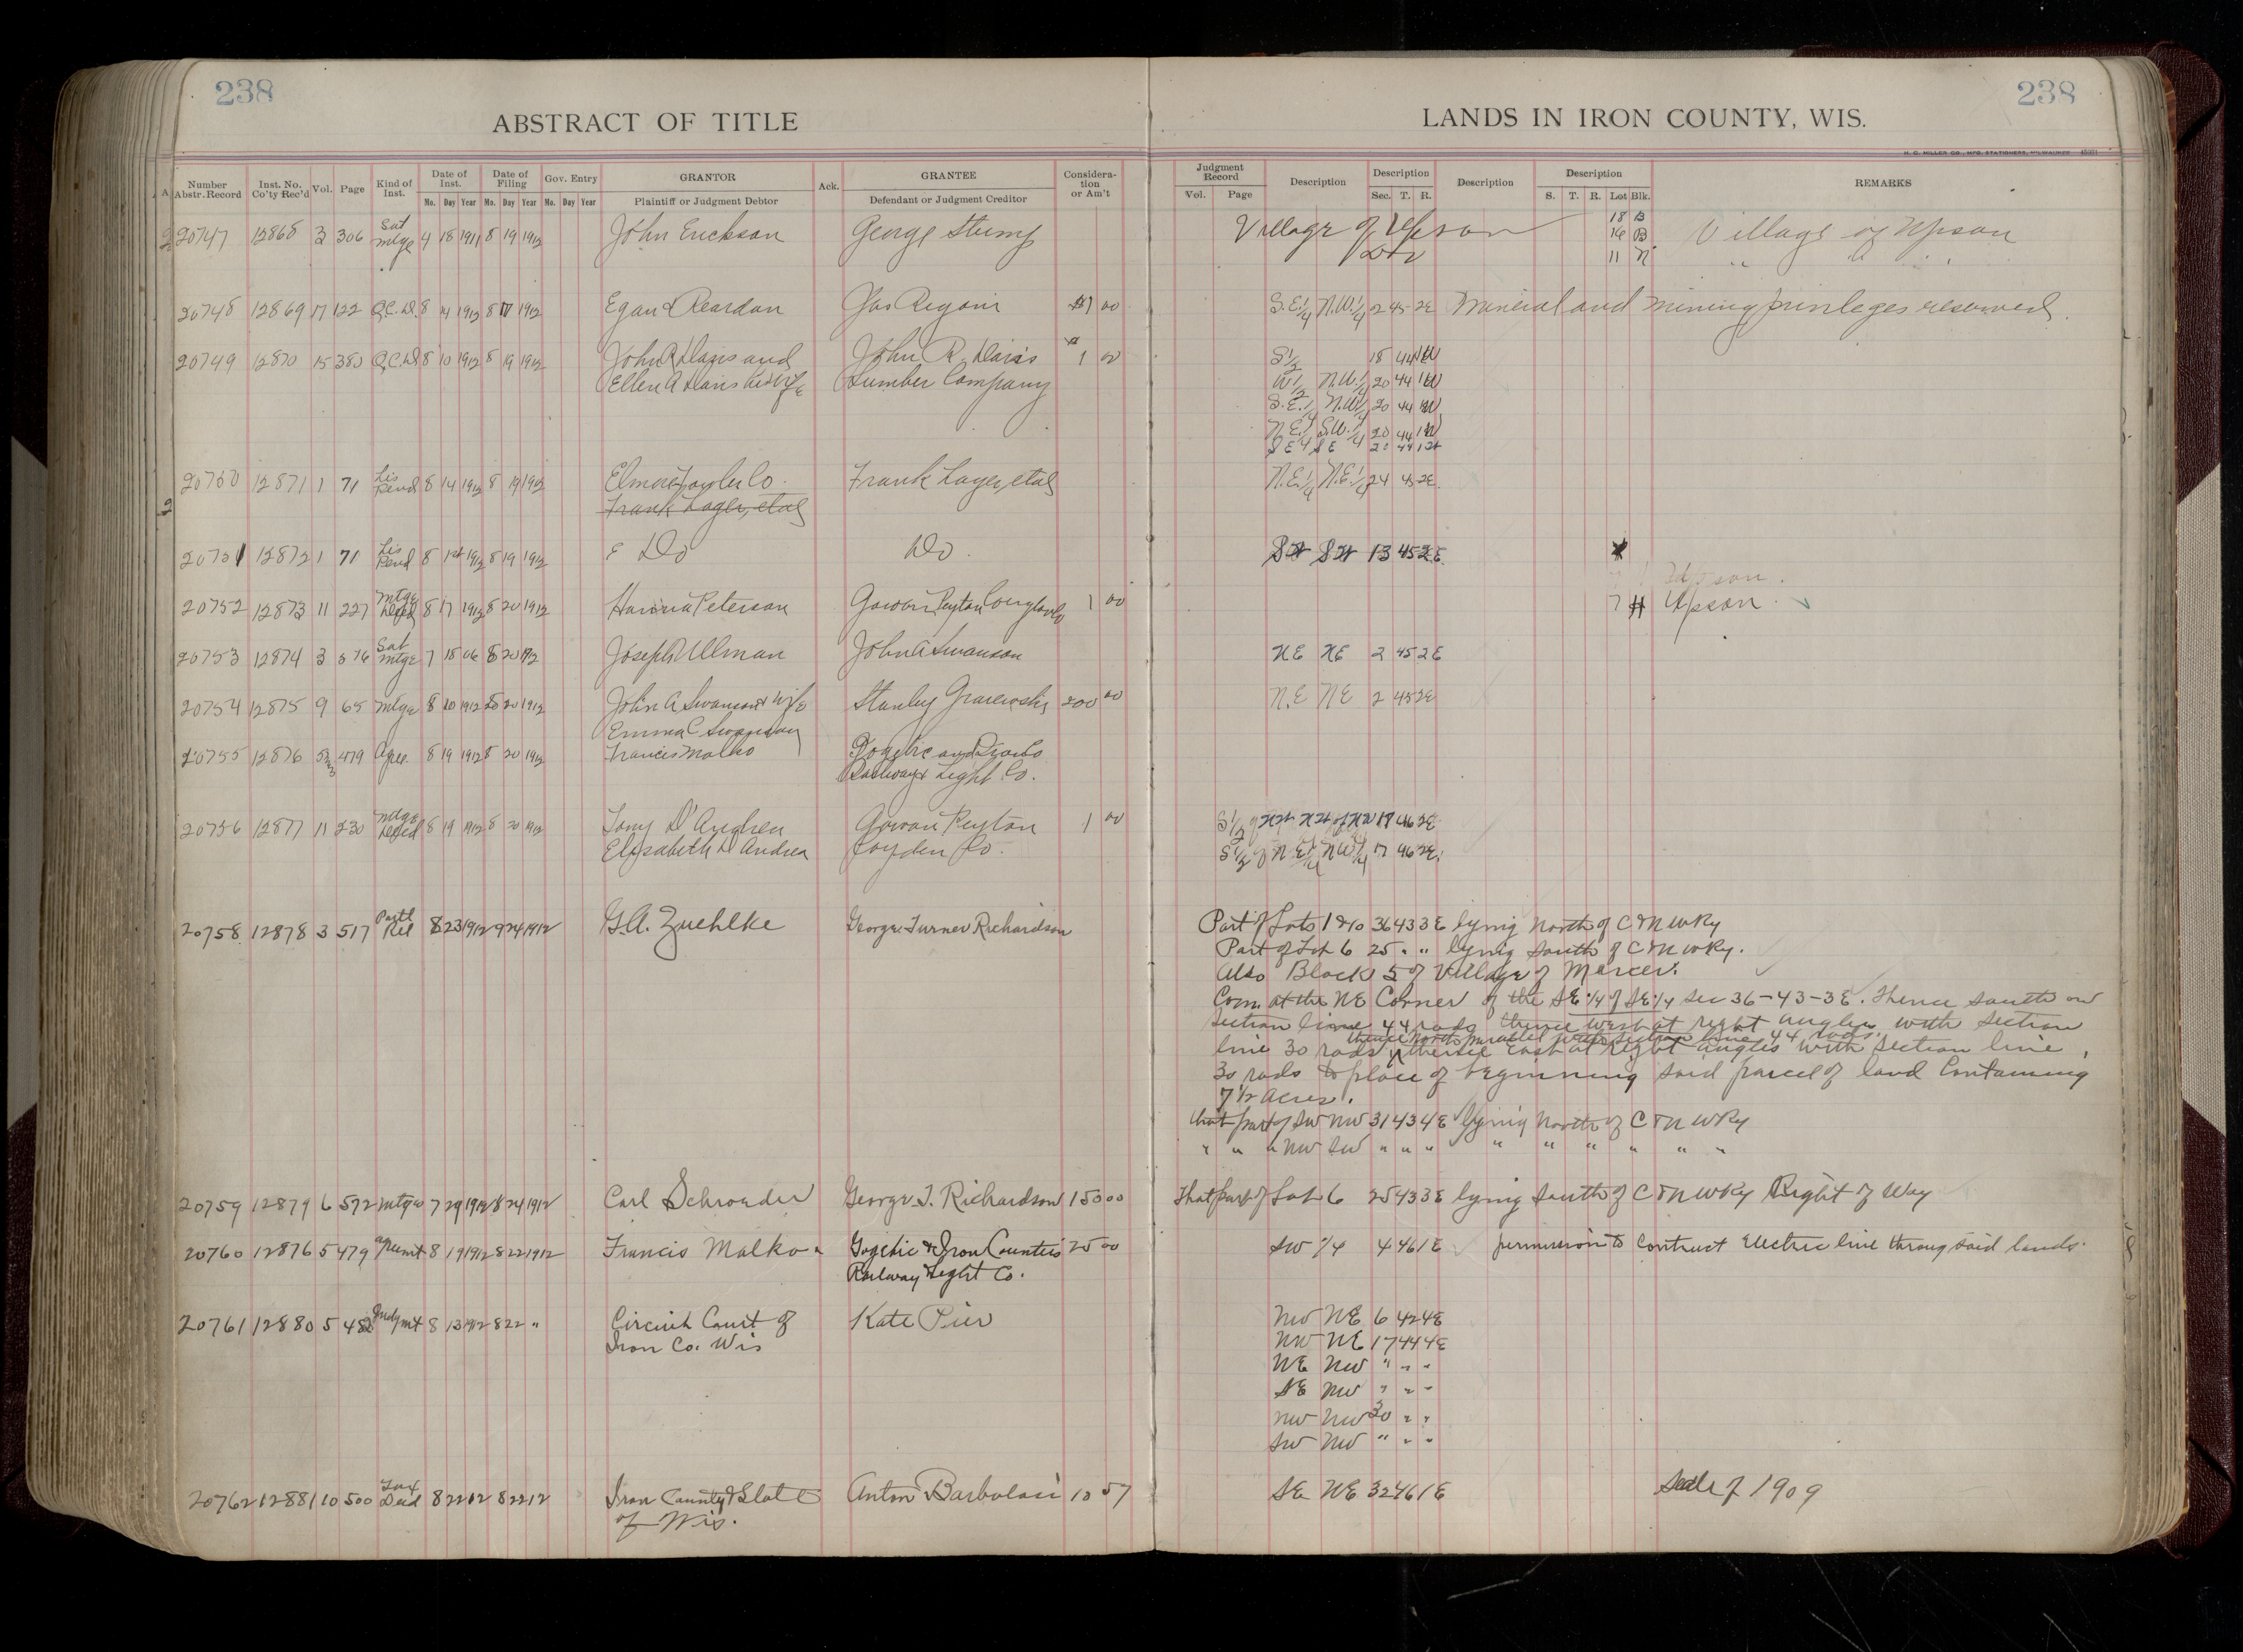 238
238
ABSTRACT OF TITLE
LANDS IN IRON COUNTY, WIS.
H. C. MILLER CO., MFG. STATIONERS, MILWAUKEE
A Number Abstr. Record Inst. No. Co'ty Rec'd Vol. Page Kind of Inst. Date of Inst. Mo. Day Year Date of Filing Mo. Day Year Gov. Entry Mo. Day Year GRANTOR Plaintiff or Judgment Debtor Ack. GRANTEE Defendant or Judgment Creditor Considera-tion or Am't
Judgment Record Vol. Page Description Description Sec. T. R. Description Description S. T. R. Lot Blk. REMARKS
20747 12868 3 306 Sat Mtge 4 18 1911 8 19 1912 John Erickson George Stump Village of Upson 18 B Village of Upson
16 B
11 N
20748 12869 17 122 Q.C.D. 8 14 1912 8 1912 Egan & Reardon $1 00 S.E.1/4 N.W.1/4 2 45 2E Mineral and mining privileges reserved.
20749 12870 15 380 Q.C.D. 8 10 1912 8 19 1912 John R Davis and John R. Davis 1 00 S1/2 18 44 1W
Ellen A Davis his wife Lumber Company W1/2 N.W.1/4 20 44 1W
S.E.1/4 N.W.1/4 20 44 1W
N.E.1/4 S.W.1/4 20 44 1W
SE SE 20 44 1W
20750 12871 1 71 Lis Pend 8 14 1912 8 19 1912 Co. Frank Lager, etal N.E.1/4 N.E.1/4 24 45 2E.
Frank Lager, etal
20751 12872 1 71 Lis Pend 8 1912 8 19 1912 Do Do. SW SW 13 45 2E.
Upson.
20752 12873 11 227 Mtge Deed 8 17 1912 8 20 1912 Peterson Gowan Peyton Co 1 00 7 H Upson.
20753 12874 3 Sat Mtge 7 18 06 8 20 1912 Joseph Ullman John A Swanson NE NE 2 45 2E
20754 12875 9 65 Mtge 8 20 1912 8 20 1912 John A Swanson & wife Stanley 200 00 N.E NE 2 45 2E
Emma C Swanson
20755 12876 5 479 Agree. 8 19 1912 8 20 1912 Francis Malko Gogebic and Iron Co
Railway & Light Co.
20756 12877 11 230 Mtge Deed 8 19 1912 8 20 1912 Tony D'Andrea Gowan Peyton 1 00 S1/2 of 18 46 2E
Elizabeth D Andrea Co. S1/2 of N.E1/4 NW1/4 17 46 2E.
20758 12878 3 517 Partl Rel 8 23 1912 9 24 1912 G.A. Zuehlke George Turner Richardson Part of Lots 1 & 10 36 43 3E lying North of C & N W Ry
Part of Lot 6 25 " " lying South of C & N W Ry.
Also Block 5 of Village of Mercer.
Com. at the NE Corner of the SE 1/4 of SE 1/4 Sec 36-43-3E. Thence South on
Section line 44 rods thence West at right angles with section
thence North parallel with section line 44 rods.
line 30 rods thence East at right angles with section line
30 rods to place of beginning said parcel of land Containing
7 1/2 Acres.
That part of SW NW 31 43 4E lying North of C & N W Ry
" " " NW SW " " " " " " " " "
20759 12879 6 572 Mtge 7 29 1912 8 24 1912 Carl Schroeder George T. Richardson 150 00 That part of Lot 6 25 43 3E lying South of C & N W Ry Right of Way
20760 12876 5 479 agreemt 8 19 1912 8 22 1912 Francis Malko Gogebic & Iron Counties 25 00 SW 1/4 4 46 1E permission to Contruct Electric line throug said lands.
Railway & Light Co.
20761 12880 5 482 Judgmt 8 13 1912 8 22 " Circuit Court of Kate Pier NW NE 6 42 4E
Iron Co. Wis NW NE 17 44 4E
NE NW " " "
SE NW " " "
NW NW 30 " "
SW NW " " "
20762 12881 10 500 Tax Deed 8 22 12 8 22 12 Iron County & State Anton Barbolasi 10 57 SE NE 32 46 1E Sale of 1909
of Wis.